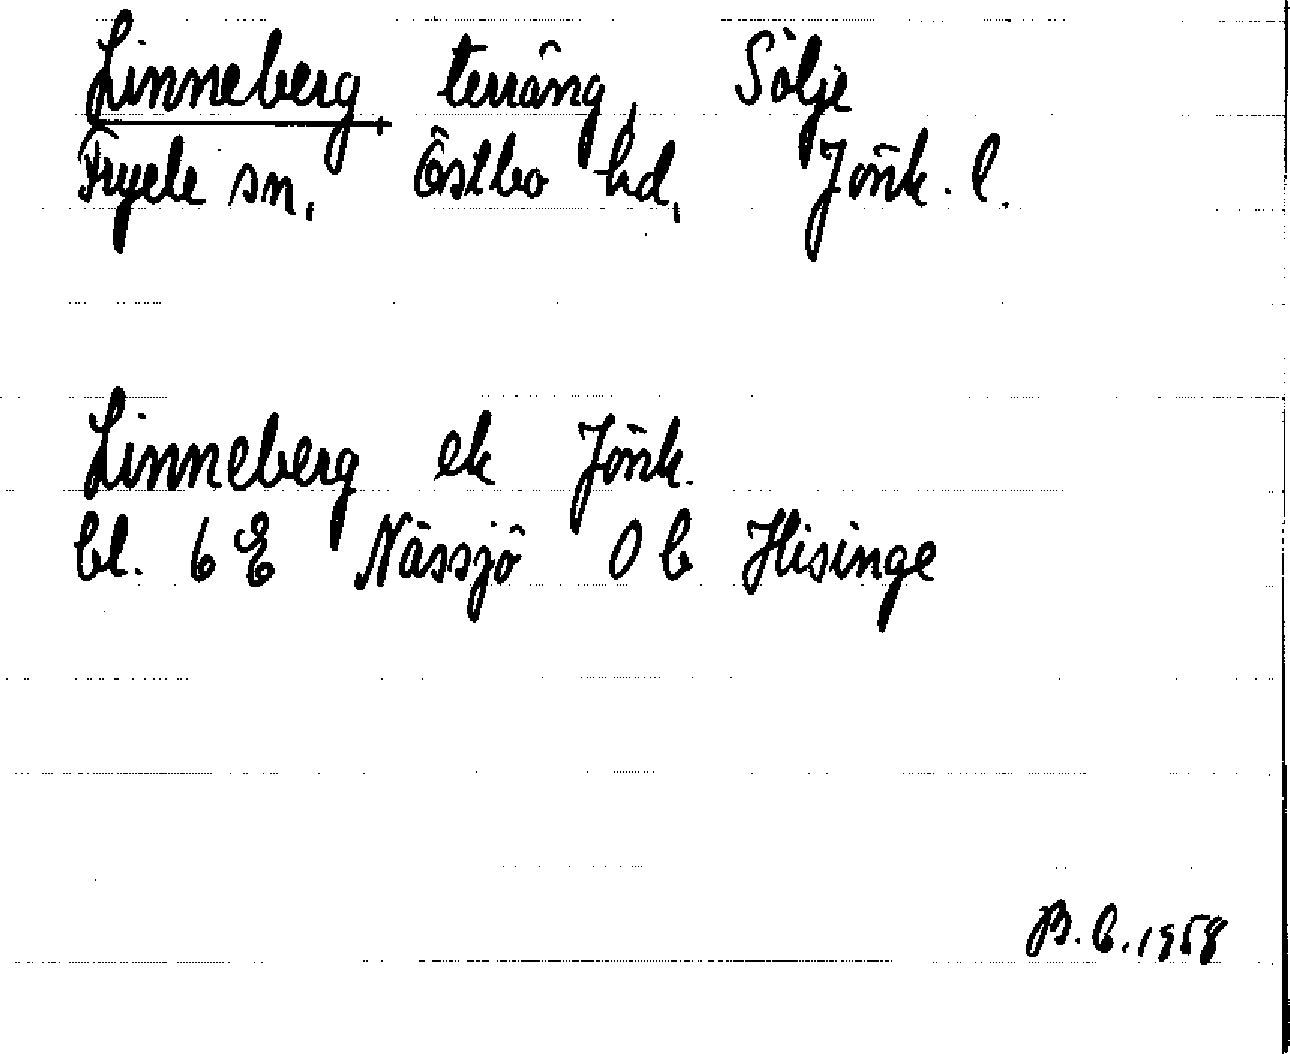 Linneberg terräng, Sölje
Fryele sn, Östbo hd, Jönk. l.
Linneberg ek Jönk.
bl. 6 E Nässjö 0 b Hisinge
B.b. 1958